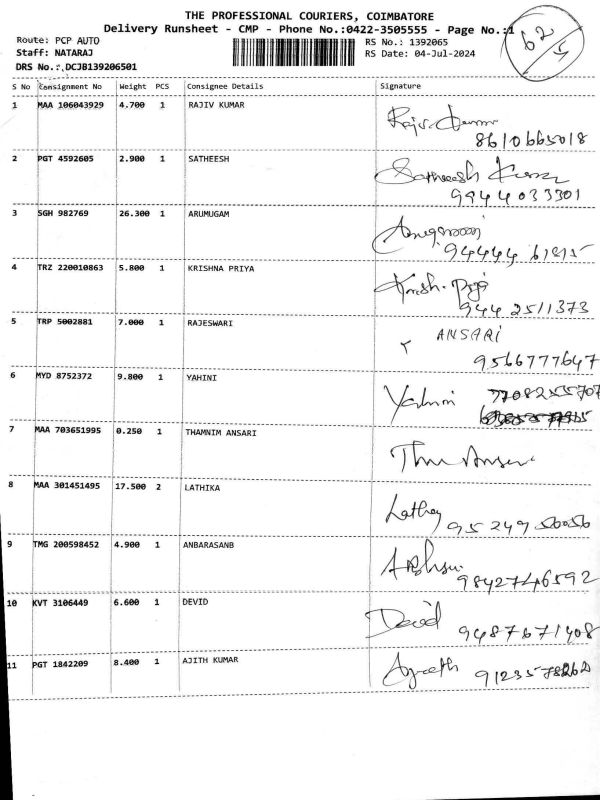 THE PROFESSIONAL COURIERS, COIMBATORE
Delivery Runsheet - CMP - Phone No.:0422-3505555 - Page No.:1
Route: PCP AUTO
RS No.: 1392065
Staff: NATARAJ
RS Date: 04-Jul-2024
DRS No.: DCJB139206501
62
S No Consignment No Weight PCS Consignee Details Signature
1 MAA 106043929 4.700 1 RAJIV KUMAR
Rajiv Kumar
8610665018
2 PGT 4592605 2.900 1 SATHEESH
Satheesh Kumar
9944033301
3 SGH 982769 26.300 1 ARUMUGAM
4 TRZ 220010863 5.800 1 KRISHNA PRIYA
9442511373
5 TRP 5002881 7.000 1 RAJESWARI
ANSARI
9566777647
6 MYD 8752372 9.800 1 YAHINI
Yahini 7708255707
7 MAA 703651995 0.250 1 THAMNIM ANSARI
8 MAA 301451495 17.500 2 LATHIKA
95249 56056
9 TMG 200598452 4.900 1 ANBARASANB
9842746592
10 KVT 3106449 6.600 1 DEVID
David 9487671408
11 PGT 1842209 8.400 1 AJITH KUMAR